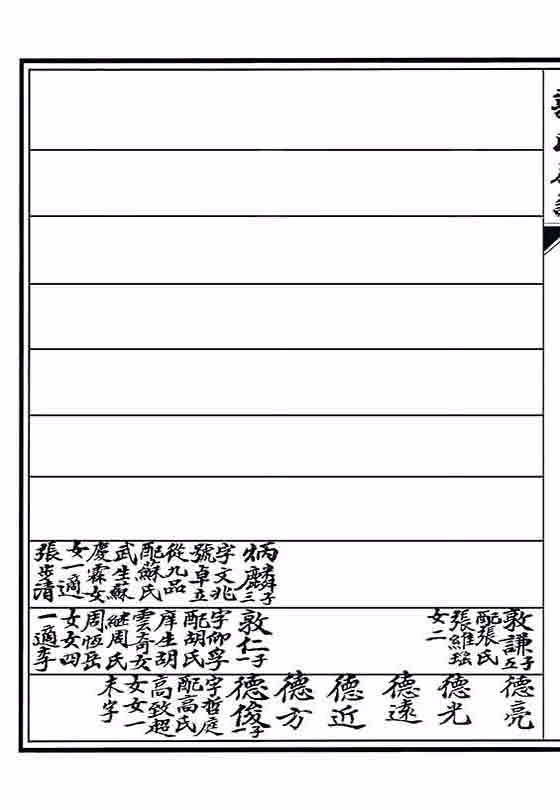 敦謙子五
配張氏
張維瑤
女二
德亮
德光
德遠
德近
德方
炳麟子三
字文兆
號卓立
從九品
配蘇氏
武生蘇
慶霖女
女一適
張步清
敦仁子一
字仰孚
配胡氏
庠生胡
雲奇女
繼周氏
周恒岳
女女四
一適李
德俊子一
字哲庭
配高氏
高致超
女女一
未字